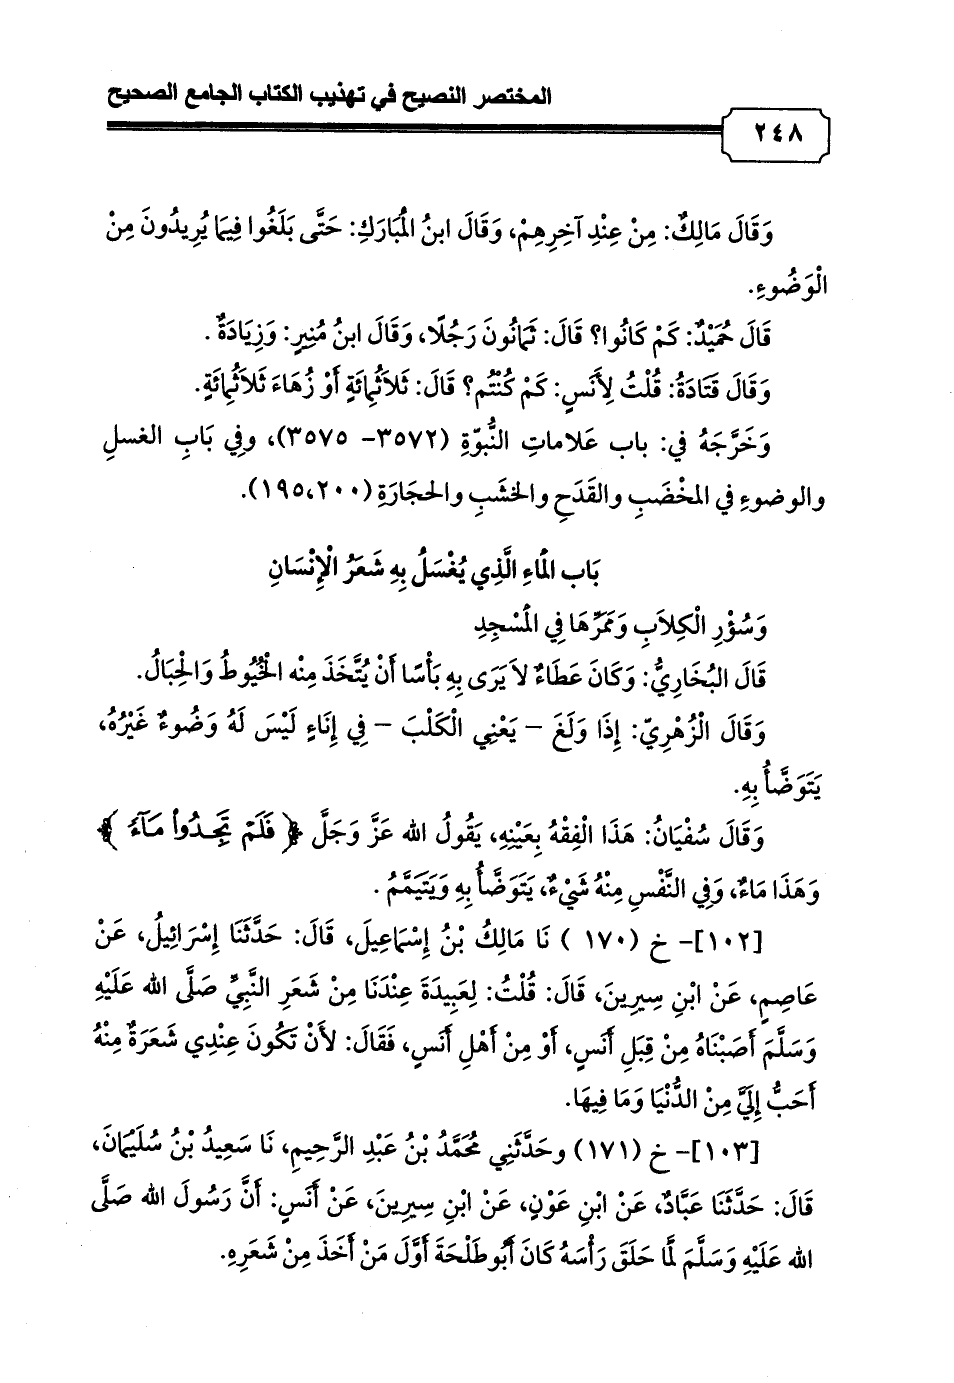 المختصر النصيح في تهذيب الكتاب الجامع الصحيح
٢٤٨
وَقَالَ مَالِكٌ: مِنْ عِنْدِ آخِرِهِمْ، وَقَالَ ابنُ المُبَارَكِ: حَتَّى بَلَغُوا فِيمَا يُرِيدُونَ مِنْ
الْوَضُوءِ.
قَالَ حُمَيْدٌ: كَمْ كَانُوا؟ قَالَ: ثَمَانُونَ رَجُلًا، وَقَالَ ابنُ مُنِيرٍ: وَزِيَادَةٌ.
وَقَالَ قَتَادَةُ: قُلْتُ لِأَنَسٍ: كَمْ كُنْتُم؟ قَالَ: ثَلاَثُمِائَةٍ أَوْ زُهَاءَ ثَلاَثُمِائَةٍ.
وَخَرَّجَهُ في: باب عَلاماتِ النُّبوّةِ (٣٥٧٢- ٣٥٧٥)، وفِي بَابِ الغسلِ
والوضوءِ في المخْضَبِ والقَدَحِ والخشَبِ والحجَارَةِ (١٩٥،٢٠٠).
بَاب المَاءِ الَّذِي يُغْسَلُ بِهِ شَعَرُ الْإِنْسَانِ
وَسُؤْرِ الْكِلاَبِ وَمَمَرِّهَا فِي المَسْجِدِ
قَالَ البُخَارِيُّ: وَكَانَ عَطَاءٌ لاَ يَرَى بِهِ بَأْسًا أَنْ يُتَّخَذَ مِنْه الْخُيُوطُ وَالْحِبَالُ.
وَقَالَ الْزُهْرِيّ: إِذَا وَلَغَ – يَعْنِي الْكَلْبَ – فِي إِنَاءٍ لَيْسَ لَهُ وَضُوءٌ غَيْرُهُ،
يَتَوَضَّأُ بِهِ.
وَقَالَ سُفْيَانُ: هَذَا الْفِقْهُ بِعَيْنِهِ، يَقُولُ الله عَزَّ وَجَلَّ ﴿ فَلَمْ تَجِدُواْ مَآءً ﴾
وَهَذَا مَاءٌ، وَفِي النَّفْسِ مِنْهُ شَيْءٌ، يَتَوَضَّأُ بِهِ وَيَتَيَمَّمُ.
[١٠٢]- خ (١٧٠) نَا مَالِكُ بْنُ إِسْمَاعِيلَ، قَالَ: حَدَّثَنَا إِسْرَائِيلُ، عَنْ
عَاصِمٍ، عَنْ ابْنِ سِيرِينَ، قَالَ: قُلْتُ: لِعَبِيدَةَ عِنْدَنَا مِنْ شَعَرِ النَّبِيِّ صَلَّى الله عَلَيْهِ
وَسَلَّمَ أَصَبْنَاهُ مِنْ قِبَلِ أَنَسٍ، أَوْ مِنْ أَهْلِ أَنَسٍ، فَقَالَ: لأَنْ تَكُونَ عِنْدِي شَعَرَةٌ مِنْهُ
أَحَبُّ إِلَيَّ مِنْ الدُّنْيَا وَمَا فِيهَا.
[١٠٣]- خ (١٧١) وحَدَّثَنِي مُحَمَّدُ بْنُ عَبْدِ الرَّحِيمِ، نَا سَعِيدُ بْنُ سُلَيْمَانَ،
قَالَ: حَدَّثَنَا عَبَّادٌ، عَنْ ابْنِ عَوْنٍ، عَنْ ابْنِ سِيرِينَ، عَنْ أَنَسٍ: أَنَّ رَسُولَ الله صَلَّى
الله عَلَيْهِ وَسَلَّمَ لمَّا حَلَقَ رَأْسَهُ كَانَ أَبُو طَلْحَةَ أَوَّلَ مَنْ أَخَذَ مِنْ شَعَرِهِ.